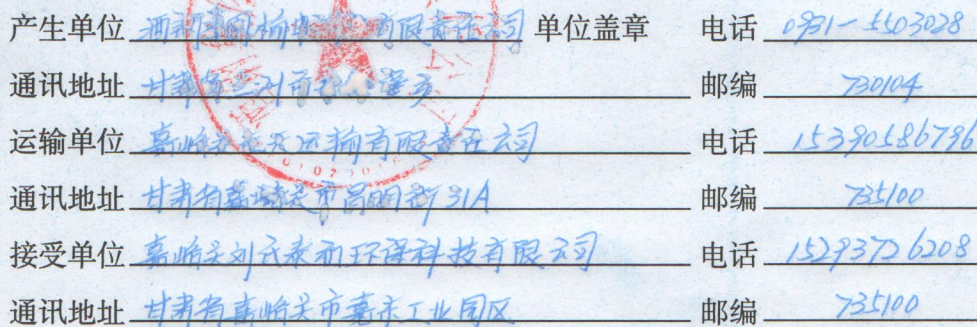 产生单位 酒钢集团榆中钢铁有限责任公司 单位盖章 电话 0931-5503028
通讯地址 甘肃省兰州市 邮编 730104
运输单位 嘉峪关 运输有限责任公司 电话 15390586796
通讯地址 甘肃省嘉峪关市昌明街31A 邮编 735100
接受单位 嘉峪关刘氏泰和环保科技有限公司 电话 15293726208
通讯地址 甘肃省嘉峪关市嘉东工业园区 邮编 735100